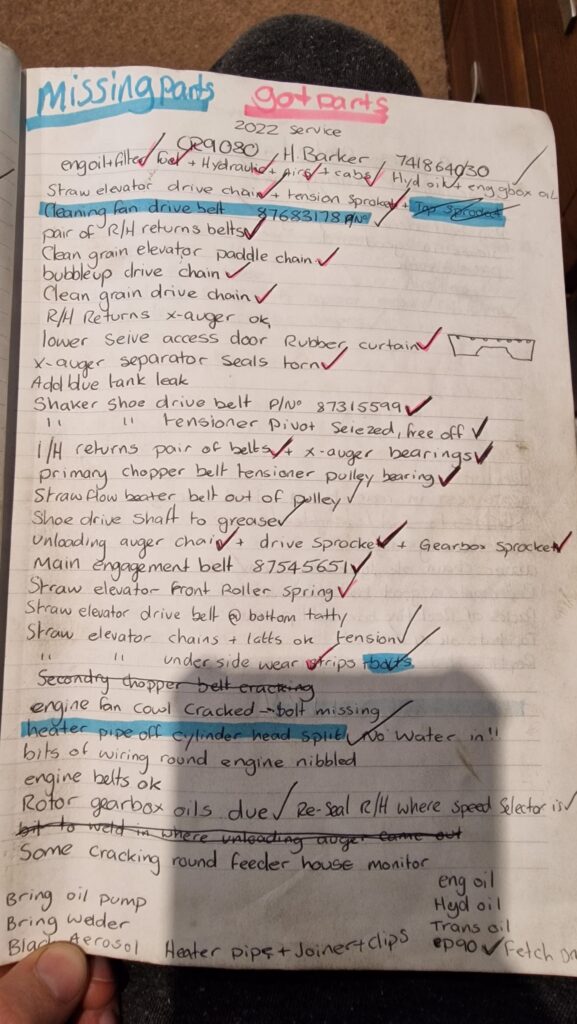 Missing parts got parts
2022 service
CR9080 H. Barker 741864030
eng oil + filter fuel + Hydraulic + Airs + cabs Hyd oil + eng gbox oil
Straw elevator drive chain + tension sproket +
Cleaning fan drive belt 87683178 P/No
pair of R/H returns belts
Clean grain elevator paddle chain
bubbleup drive chain
Clean grain drive chain
R/H Returns x-auger ok
lower seive access door Rubber curtain
x-auger separator seals torn
Add blue tank leak
Shaker shoe drive belt P/No 87315599
" " tensioner pivot Seiezed, free off
L/H returns pair of belts + x-auger bearings
primary chopper belt tensioner pulley bearing
Straw flow beater belt out of pulley
Shoe drive shaft to grease
unloading auger chain + drive sprocket + Gearbox sprocket
Main engagement belt 87545651
Straw elevator front Roller spring
Straw elevator drive belt @ bottom tatty
Straw elevator chains + latts ok tension
" " under side wear strips + bolts
Secondry chopper belt cracking
engine fan cowl cracked - bolt missing
heater pipe off cylinder head split, No Water in!!
bits of wiring round engine nibbled
engine belts ok
Rotor gearbox oils due Re-Seal R/H where speed selector is
bit to weld in where unloading auger came out
Some cracking round feeder house monitor
eng oil
Bring oil pump Hyd oil
Bring welder Trans oil
Black Aerosol Heater pipe + Joiner + clips EP90 Fetch